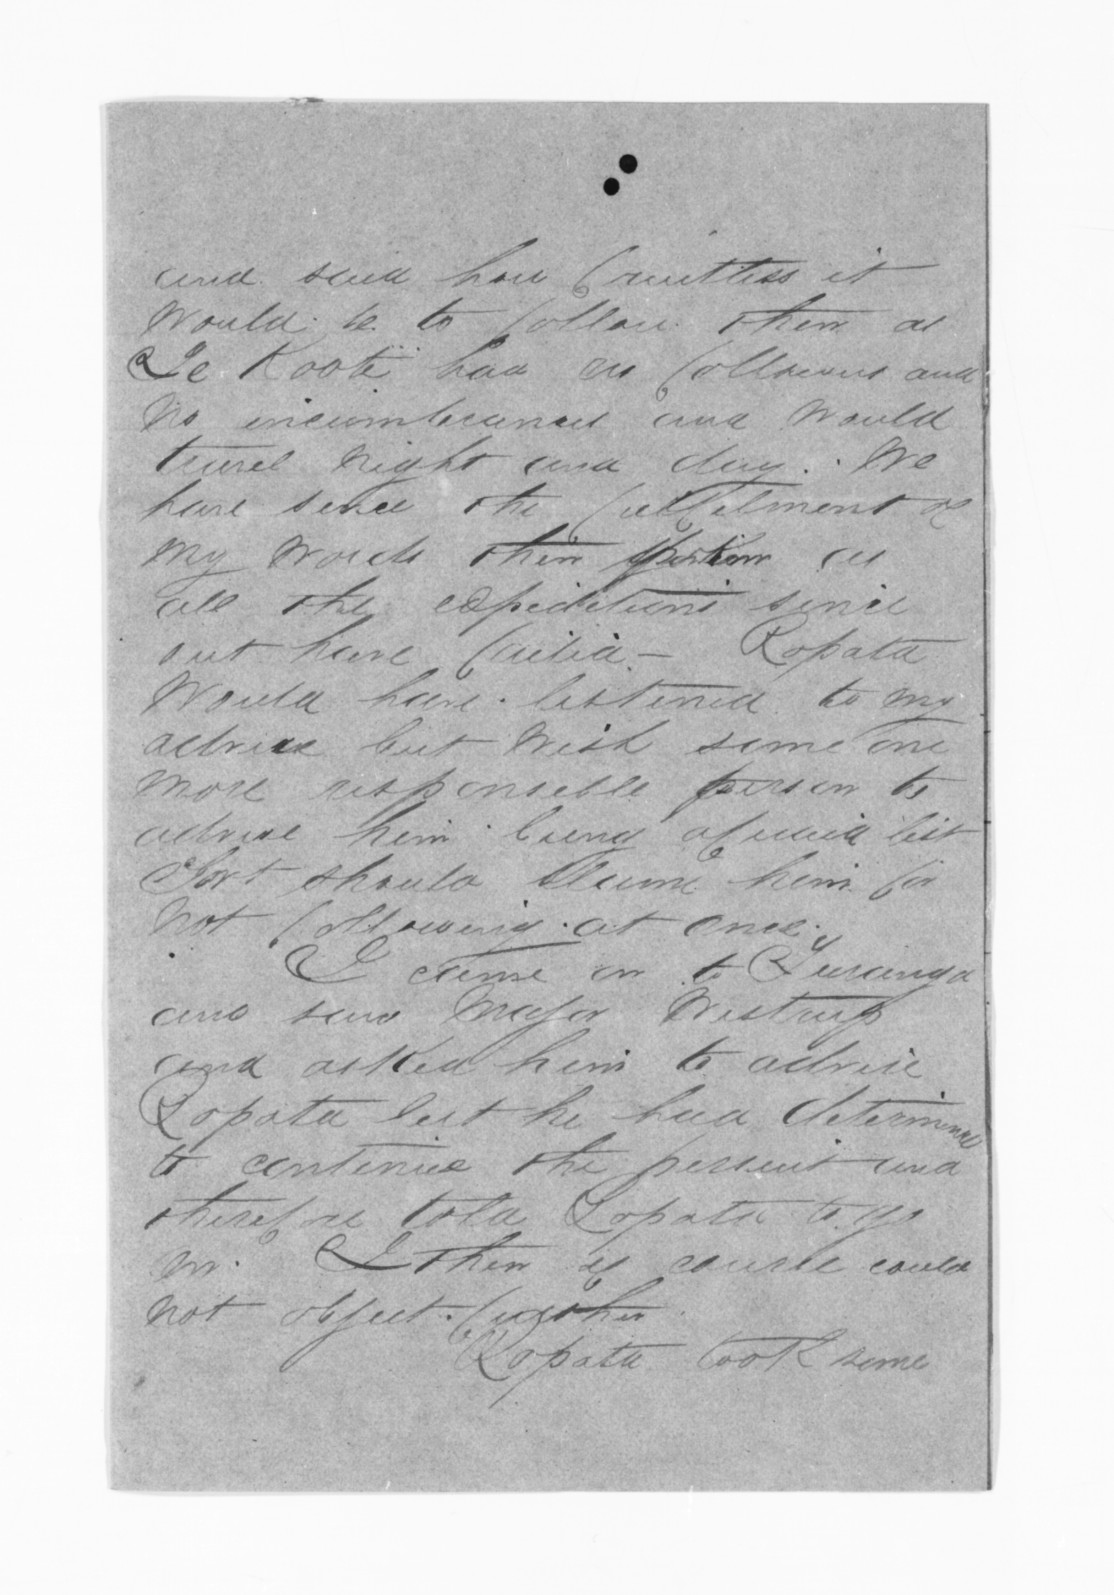 and said how fruitless it
would be to follow them as
Te Kooti had few followers and
no incumbrances and would
travel night and day. We
have since the fulfilment of
my words then spoken as
all the expeditions since
out have failed — Ropata
would have listened to my
advice but wish some one
more responsible person to
advise him being afraid lest
Govt should blame him for
not following at once.
I came on to Turanga
and saw Major Westrup
and asked him to advise
Ropata but he had determined
to continue the persuit and
therefore told Ropata to go
on. I then of course could
not object further.
Ropata took some